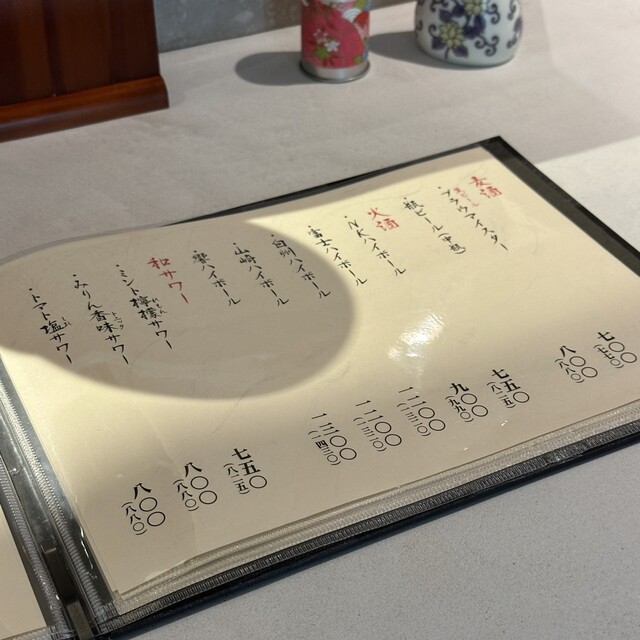 麦酒
七〇〇
(七七〇)
・瓶ビール(中瓶)
八〇〇
(八八〇)
火酒
ハイボール
七五〇
(八二五)
・富士ハイボール
九〇〇
(九九〇)
・白州ハイボール
一二〇〇
(一三二〇)
・山崎ハイボール
一二〇〇
(一三二〇)
・響ハイボール
一三〇〇
(一四三〇)
和サワー
・ミント檸檬サワー
七五〇
(八二五)
・みりん香味サワー
八〇〇
(八八〇)
・トマト塩サワー
八〇〇
(八八〇)